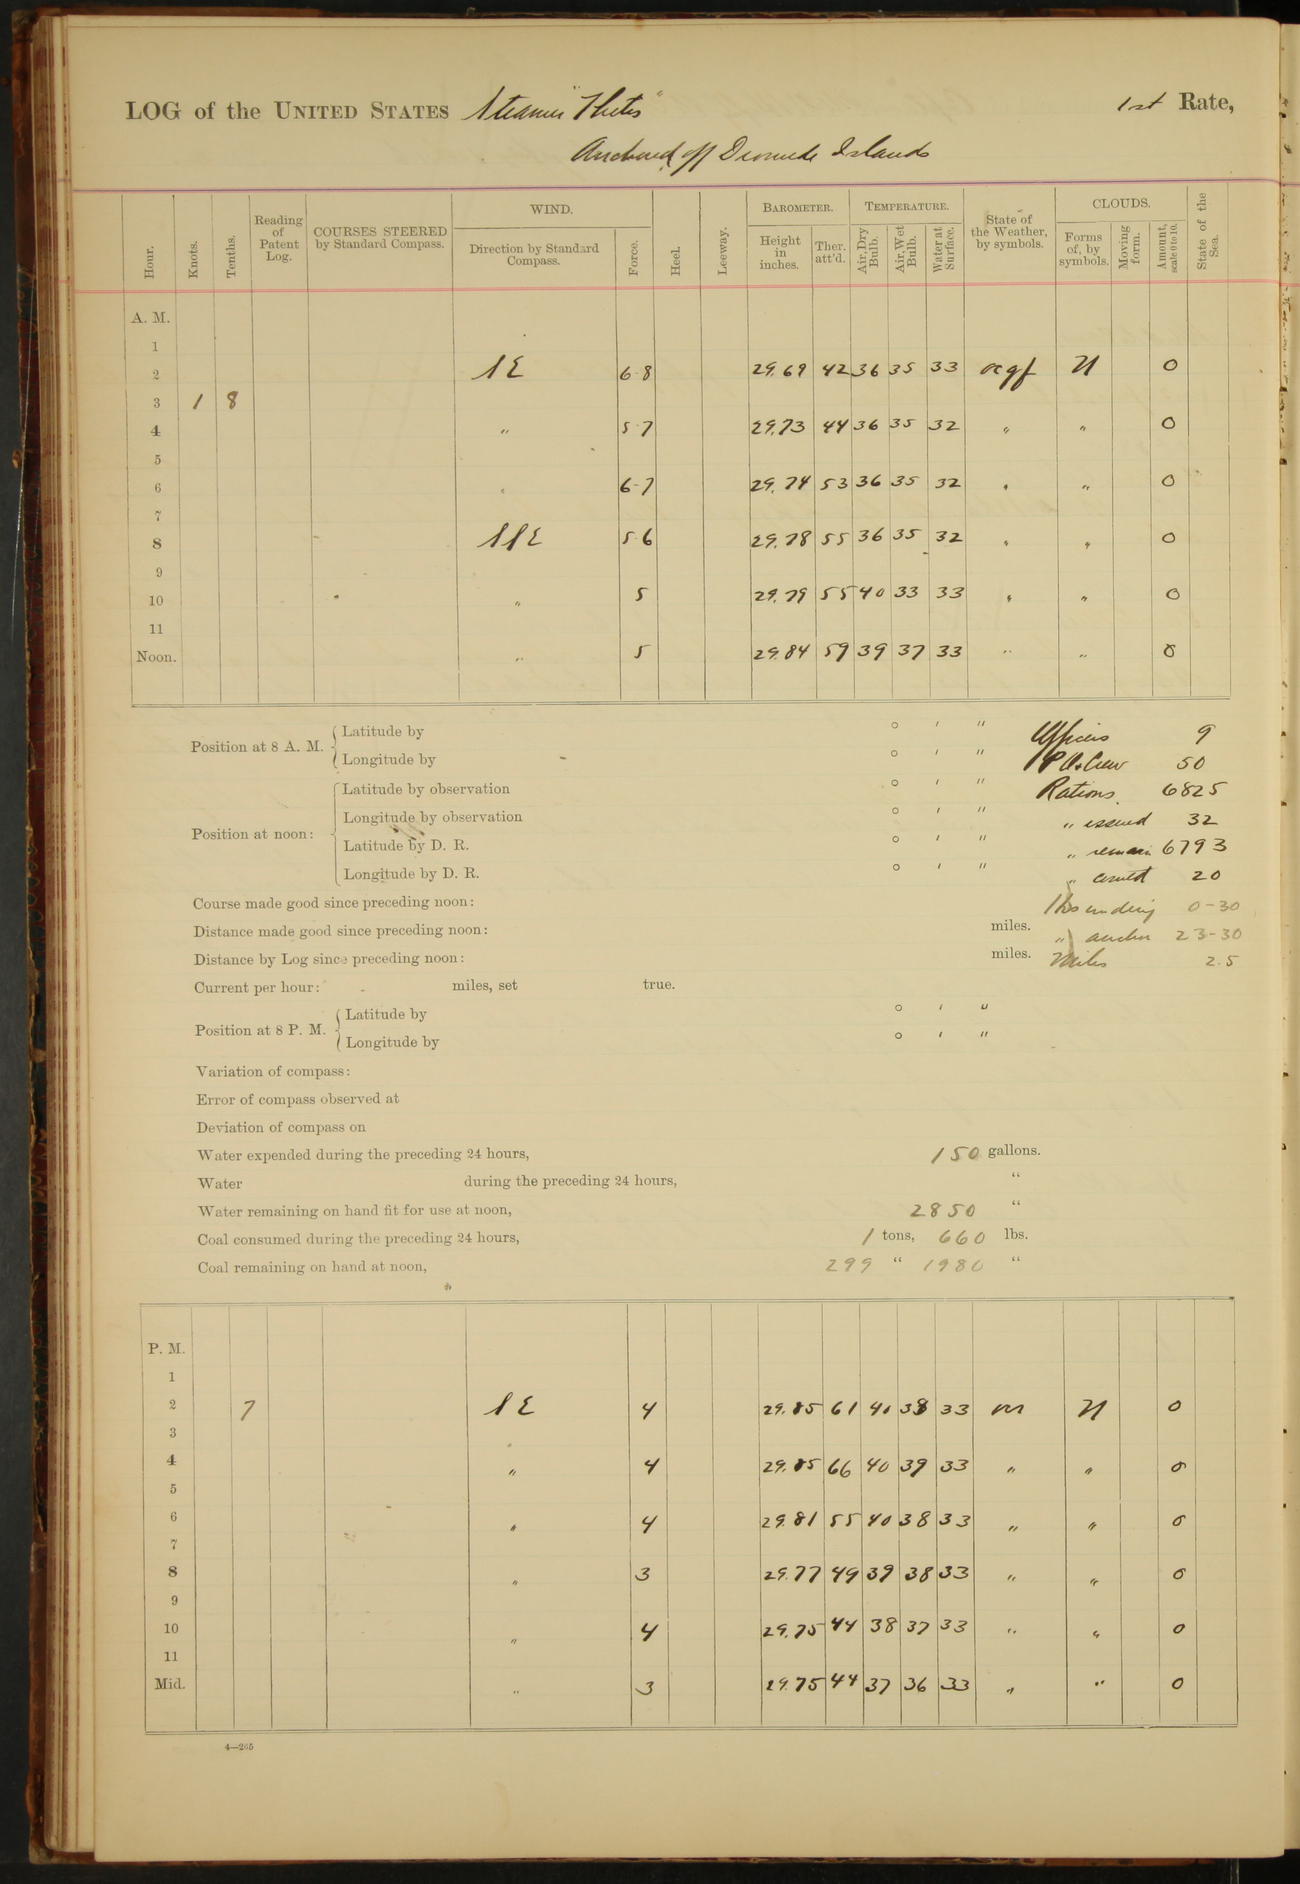 LOG of the UNITED STATES Steamer "Thetis" 1st Rate,
Anchored off Diomede Islands
Hour. Knots. Tenths. Reading of Patent Log. COURSES STEERED by Standard Compass. WIND. Direction by Standard Compass. Force. Heel. Leeway. BAROMETER. Height in inches. Ther. att'd. TEMPERATURE. Air, Dry Bulb. Air, Wet Bulb. Water at Surface. State of the Weather, by symbols. CLOUDS. Forms of, by symbols. Moving form. Amount, scale 0 to 10. State of the Sea.
A. M.
1
2 SE 6-8 29.69 42 36 35 33 ogf N 0
3 1 8
4 " 5 7 29.73 44 36 35 32 " " 0
5
6 " 6-7 29.74 53 36 35 32 " " 0
7
8 SSE 5-6 29.78 55 36 35 32 " " 0
9
10 " 5 29.79 55 40 33 33 " " 0
11
Noon. " 5 29.84 59 39 37 33 " " 0
Position at 8 A. M. Latitude by ° ' " Officers 9
Longitude by ° ' " P.O. & Crew 50
Position at noon: Latitude by observation ° ' " Rations 6825
Longitude by observation ° ' " " issued 32
Latitude by D. R. ° ' " " remain 6793
Longitude by D. R. ° ' " " comut'd 20
Course made good since preceding noon: Hrs underway 0-30
Distance made good since preceding noon: miles. " anchor 23-30
Distance by Log since preceding noon: miles. Miles 2.5
Current per hour: miles, set true.
Position at 8 P. M. Latitude by ° ' "
Longitude by ° ' "
Variation of compass:
Error of compass observed at
Deviation of compass on
Water expended during the preceding 24 hours, 150 gallons.
Water during the preceding 24 hours, "
Water remaining on hand fit for use at noon, 2850 "
Coal consumed during the preceding 24 hours, 1 tons, 660 lbs.
Coal remaining on hand at noon, 299 " 1980 "
P. M.
1
2 7 SE 4 29.85 61 41 38 33 om N 0
3
4 " 4 29.85 66 40 39 33 " " 0
5
6 " 4 29.81 55 40 38 33 " " 0
7
8 " 3 29.77 49 39 38 33 " " 0
9
10 " 4 29.75 44 38 37 33 " " 0
11
Mid. " 3 29.75 44 37 36 33 " " 0
4—265